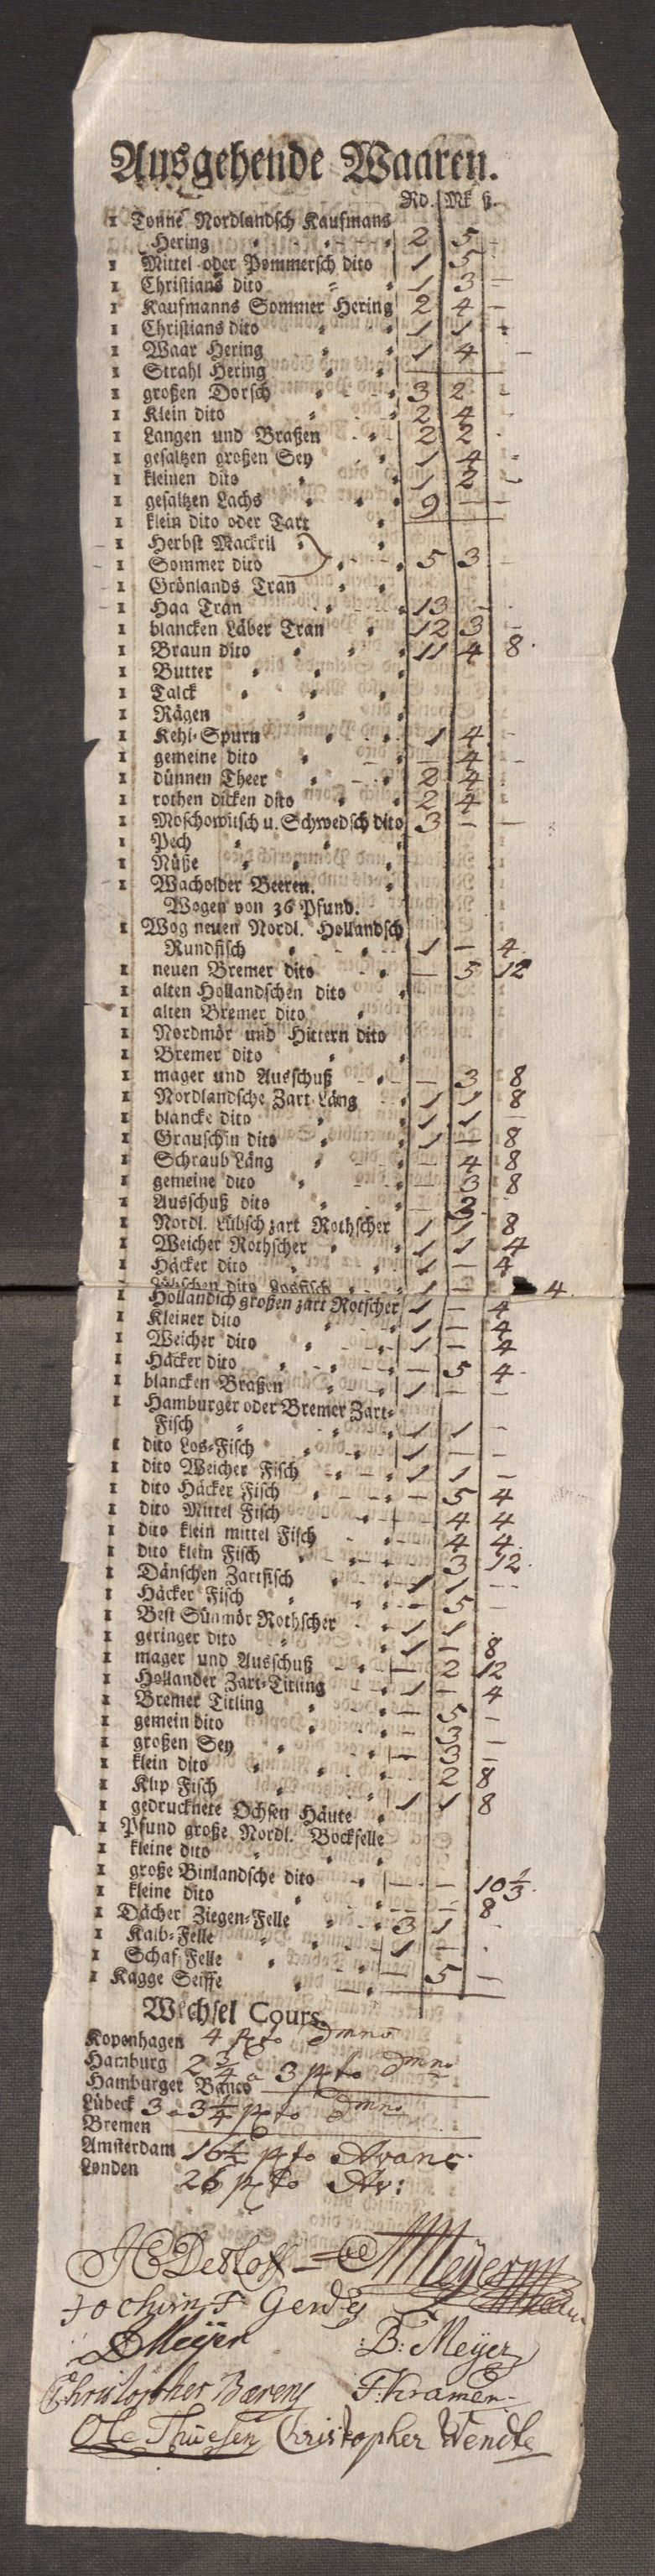 Ausgehende Waaren.
Rd. Mk ß.
1 Tonne Nordlandsch Kaufmans
Hering 2 5 -
1 Mittel oder Pommersch dito 1 5
1 Christians dito 1 3 -
1 Kaufmanns Sommer Hering 2 4 -
1 Christians dito 1 1 -
1 Waar Hering 1 4 -
1 Strahl Hering
1 großen Dorsch 3 2 -
1 Klein dito 2 4
1 Langen und Braßen 2 2
1 gesaltzen großen Sey 1 4
1 kleinen dito 1 2 -
1 gesaltzen Lachs 9 - -
1 klein dito oder Tart
1 Herbst Mackril
1 Sommer dito 5 3 -
1 Grönlands Tran
1 Haa Tran 13 -
1 blancken Läber Tran 12 3 -
1 Braun dito 11 4 8
1 Butter
1 Talck
1 Rägen
1 Kehl-Spurn 1 4 -
1 gemeine dito - 4 -
1 dünnen Theer 2 4
1 rothen dicken dito 2 4
1 Moschowitsch u. Schwedsch dito 3 - -
1 Pech
1 Nüße
1 Wacholder Beeren.
Wogen von 36 Pfund.
1 Wog neuen Nordl. Hollandsch
Rundfisch 1 - 4
1 neuen Bremer dito - 5 12
1 alten Hollandschen dito
1 alten Bremer dito
1 Nordmör und Hittern dito
1 Bremer dito
1 mager und Ausschuß - 3 8
1 Nordlandsche Zart Läng 1 1 8
1 blancke dito 1 1 -
1 Grauschin dito 1 - 8
1 Schraub Läng - 4 8
1 gemeine dito - 3 8
1 Ausschuß dito - 3
1 Nordl. Lübsch zart Rothscher 1 1 8
1 Weicher Rothscher 1 1 4
1 Häcker dito 1 - 4
dito 1 - 4
1 Hollandich großen zart Rotscher 1 - 4
1 Kleiner dito 1 - 4
1 Weicher dito 1 - 4
1 Häcker dito - 5 4
1 blancken Braßen 1 - -
1 Hamburger oder Bremer Zart-
Fisch 1 1 -
1 dito Los-Fisch 1 - -
1 dito Weicher Fisch 1 1 -
1 dito Häcker Fisch - 5 4
1 dito Mittel Fisch - 4 4
1 dito klein mittel Fisch - 4 4
1 dito klein Fisch - 3 12
1 Dänschen Zartfisch 1 1 -
1 Häcker Fisch - 5 -
1 Best Sünmör Rothscher 1 1
1 geringer dito 1 - 8
1 mager und Ausschuß - 2 12
1 Hollander Zart-Titling 1 - 4
1 Bremer Titling - 5 -
1 gemein dito - 3 -
1 großen Sey - 3 -
1 klein dito - 2 8
1 Klip Fisch 1 1 8
1 gedrucknete Ochsen Häute
1 Pfund große Nordl. Bockfelle
1 kleine dito
1 große Binlandsche dito - - 10 1/3
1 kleine dito - - 8
1 Dächer Ziegen-Felle 3 1
1 Kalb-Felle 1 -
1 Schaf Felle - 5 -
1 Kagge Seiffe
Wechsel Cours.
Kopenhagen 4 p to Dmno
Hamburg 2 3/4 a 3 p to Dmno
Hamburger Banco
Lübeck 3 a 3 1/4 p to Dmno
Bremen
Amsterdam 16 1/2 p to Avanc
Londen 26 p to Av:
HC Detloff Meyer
Jochim F Gerdes
Meyer B: Meyer
Christopher Barens F: Kramer
Ole Thuesen Christopher Wendte